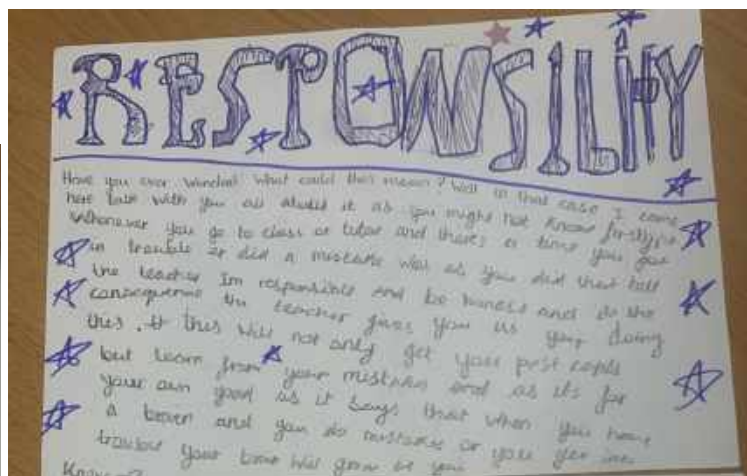 RESPONSILITY
Have you ever wondred what could this mean? Well in that case I come
here talk with you all about it as you might not know firstly
Whenever you go to class or tutor and theres a time you get
in trouble or did a mistake well as you did that tell
the teacher Im responsible and be honest and do the
consequence the teacher gives you as your doing
this, this will not only get you
but learn from your mistakes and as its for
your own good as it says that when you have
a brain and you do mistakes or you get into
trouble your brain will grow